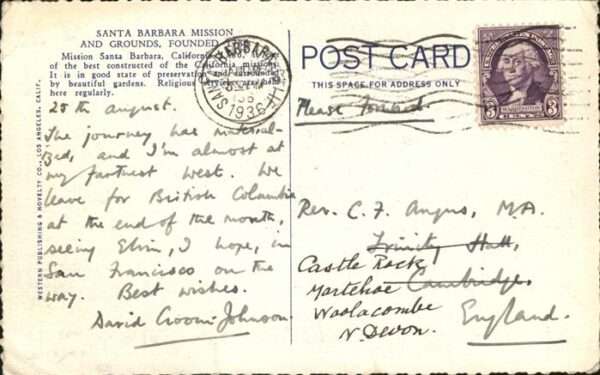 SANTA BARBARA MISSION
AND GROUNDS, FOUNDED
Mission Santa Barbara, California
of the best constructed of the California missions.
It is in good state of preservation and surrounded
by beautiful gardens. Religious services
here regularly.
WESTERN PUBLISHING & NOVELTY CO., LOS ANGELES, CALIF.
25th august.
The journey has material-
ized, and I'm almost at
my farthest West. We
leave for British Columbia
at the end of the month,
seeing Elvin, I hope, in
San Francisco on the
way. Best wishes.
David Croom-Johnson
SANTA BARBARA
1936
POST CARD
THIS SPACE FOR ADDRESS ONLY
Please forward
3 3
Rev. C. F. Angus, M.A.
Trinity Hall,
Castle Rock
Mortehoe Cambridge,
Woolacombe
N. Devon. England.